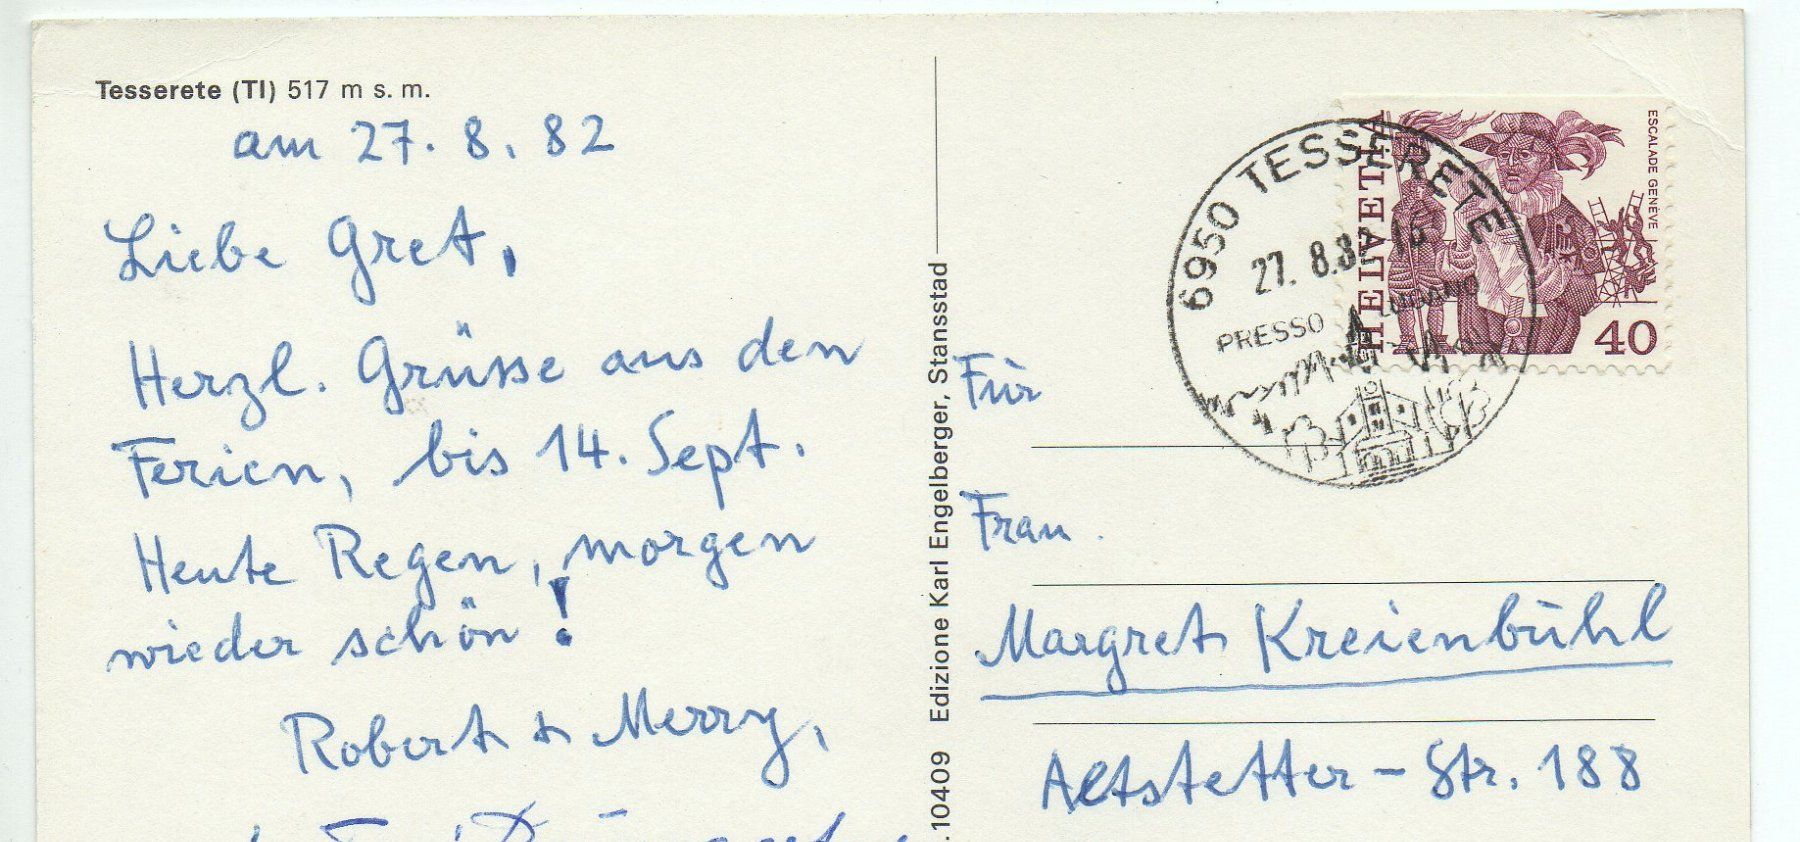 Tesserete (TI) 517 m s. m.
am 27. 8. 82
Liebe Gret,
Herzl. Grüsse aus den
Ferien, bis 14. Sept.
Heute Regen, morgen
wieder schön!
Robert + Merry,
.10409 Edizione Karl Engelberger, Stansstad
6950 TESSERETE
27. 8.82 16
PRESSO LUGANO
HELVETIA
ESCALADE GENÈVE
40
Für
Frau.
Margret Kreienbühl
Altstetter-Str. 188